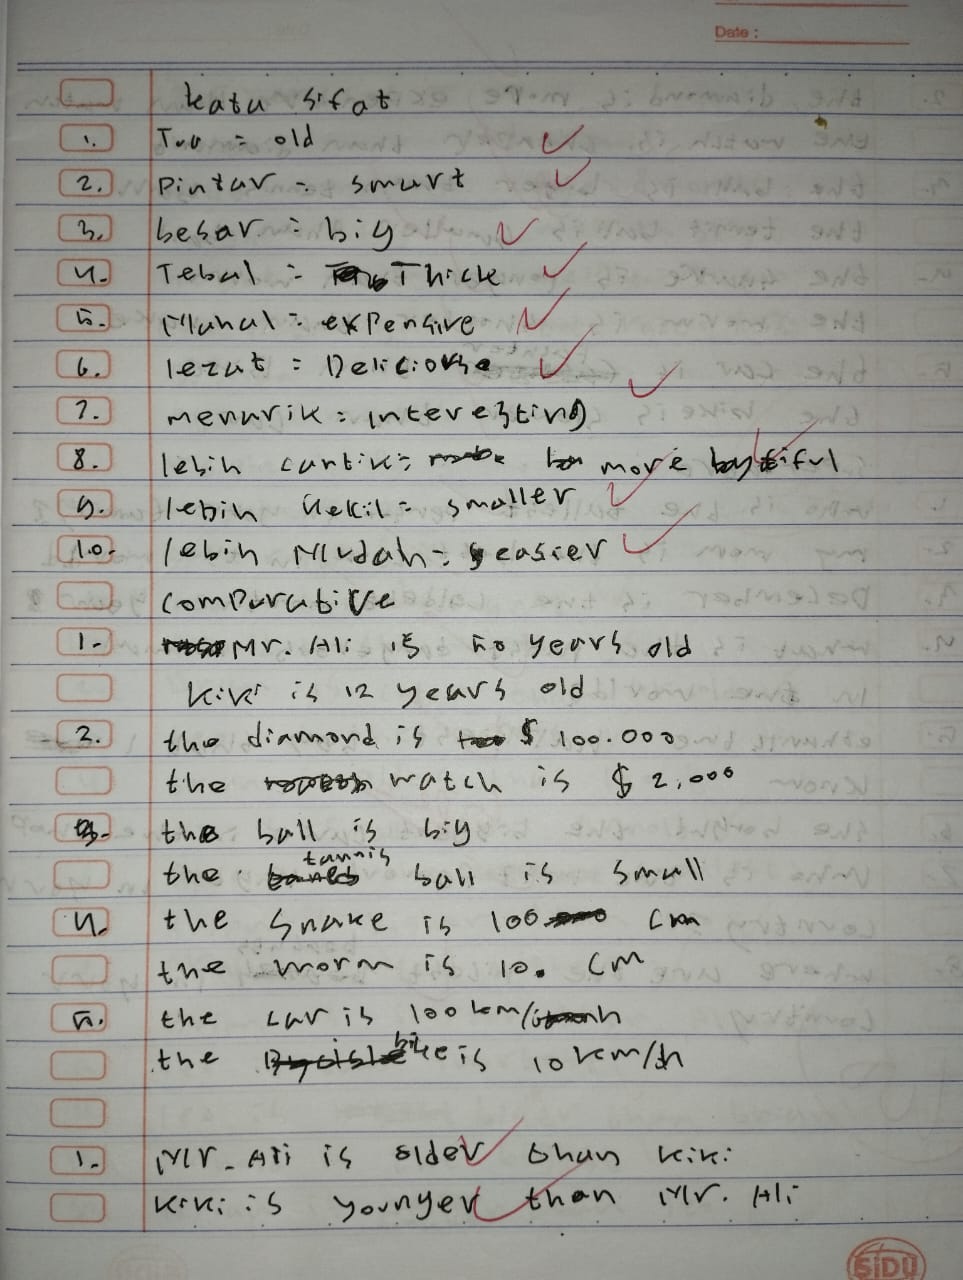 Date :
kata sifat
1. Tua = old
2. Pintar = smart
3. besar = big
4. Tebal = Thick
5. Mahal = exPensive
6. lezat = Deliciouse
7. menarik = interezting
8. lebih cantik = more beytiful
9. lebih kekil = smaller
10. lebih Mudah = easier
comParative
1. Mr. Ali is 50 years old
Kiki is 12 years old
2. the diamond is $ 100.000
the watch is $ 2,000
3. the ball is big
the tannis ball is small
4. the snake is 100 cm
the worm is 10. cm
5. the car is 100 km/h
the bike is 10 km/h
1. Mr. Ali is older than kiki
Kiki is younger than Mr. Ali
SIDU